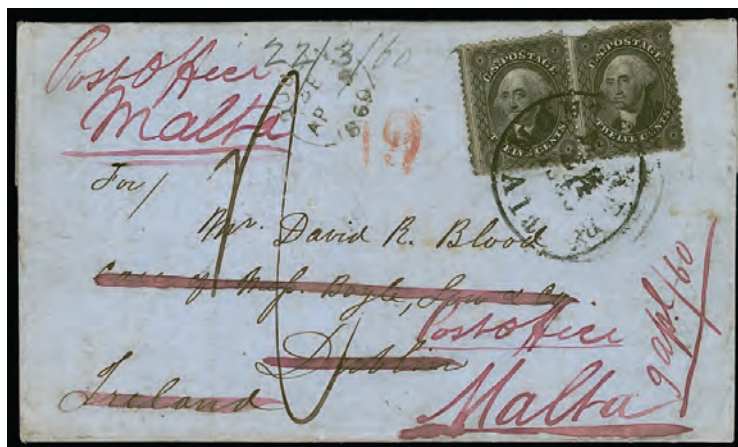 Post Office
Malta
22/3/60
AP
860
19
U.S. POSTAGE
TWELVE CENTS
U.S. POSTAGE
TWELVE CENTS
For/
Mr. David R. Blood
Care of Mess. Bogle, & Co
Post Office
Dublin
Malta
Ireland
9 apl/60